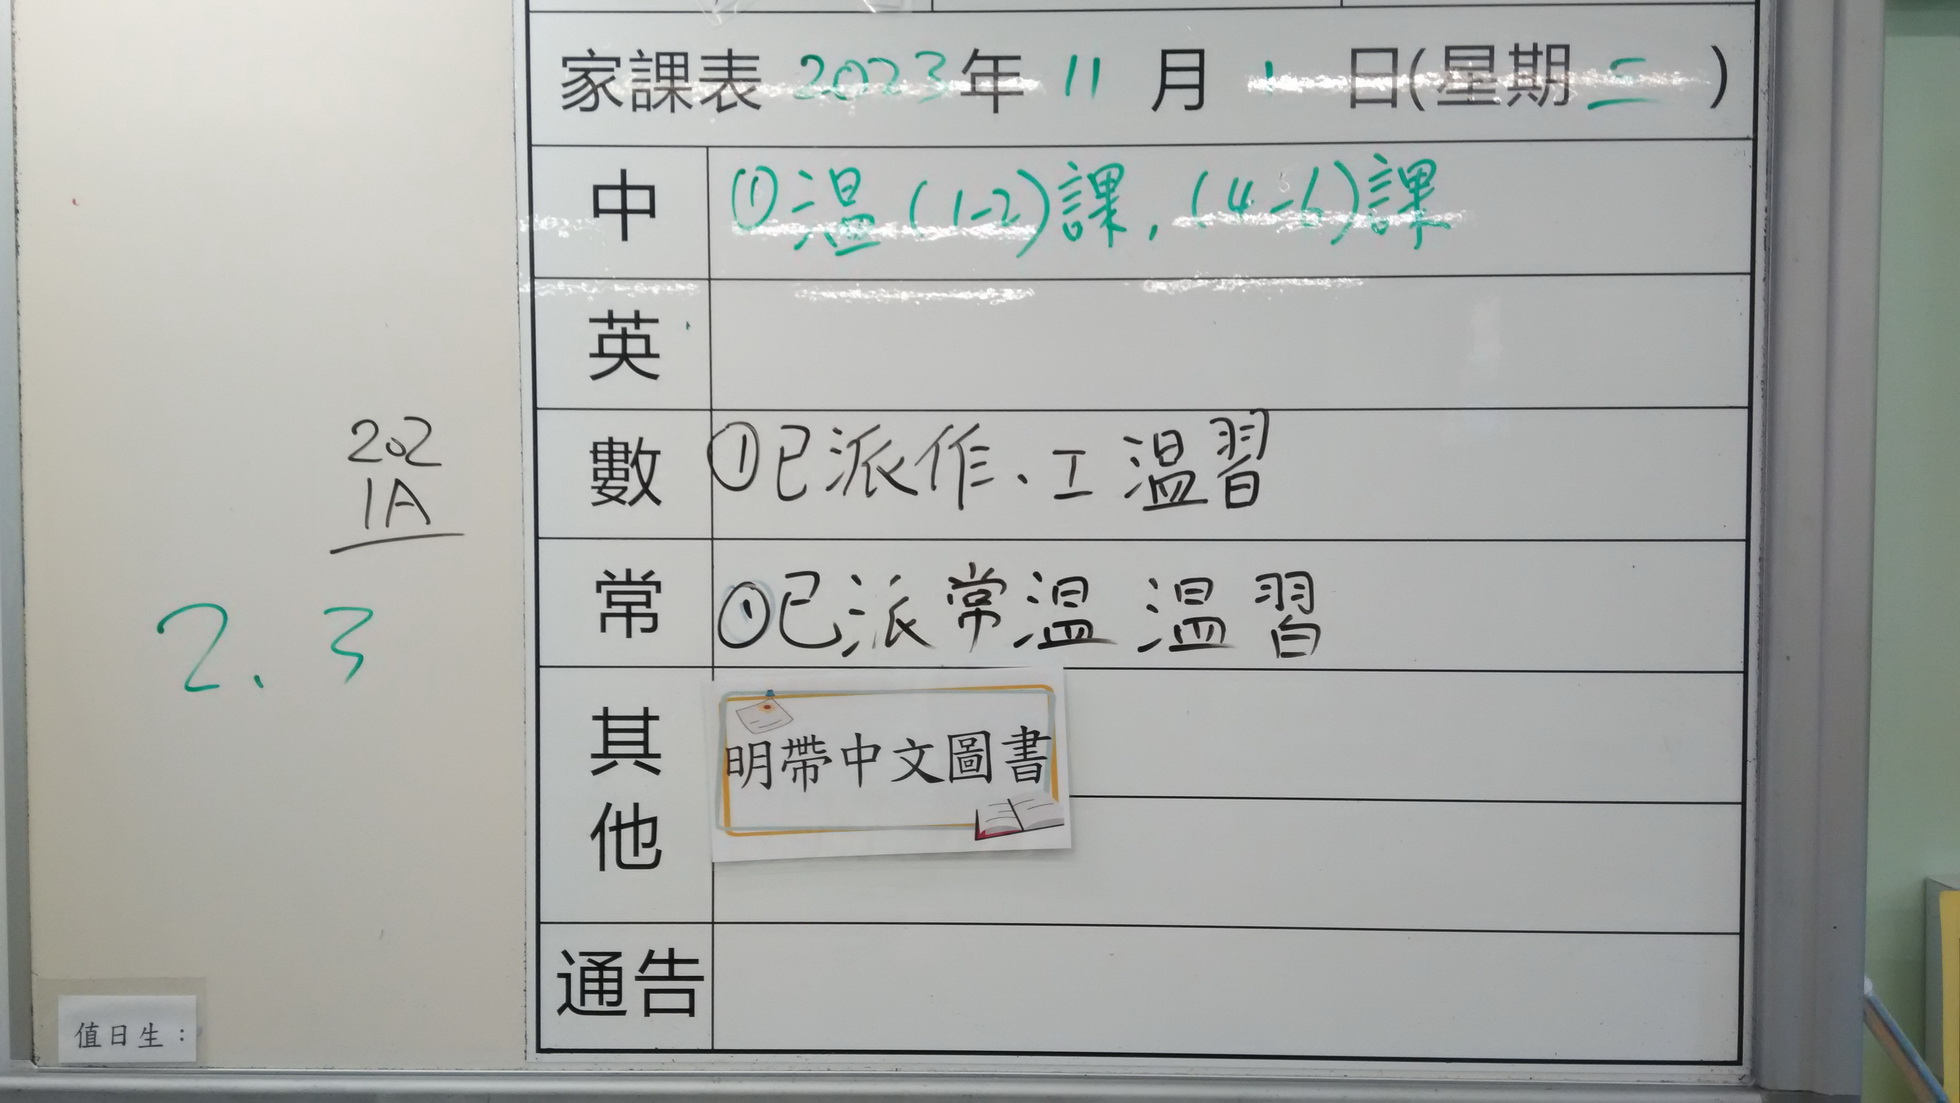 家課表 2023年 11 月 1 日(星期三)
中 ①温(1-2)課,(4-6)課
英
數 ①已派作、工温習
常 ①已派常温 温習
其他 明帶中文圖書
通告
202
1A
2. 3
值日生：